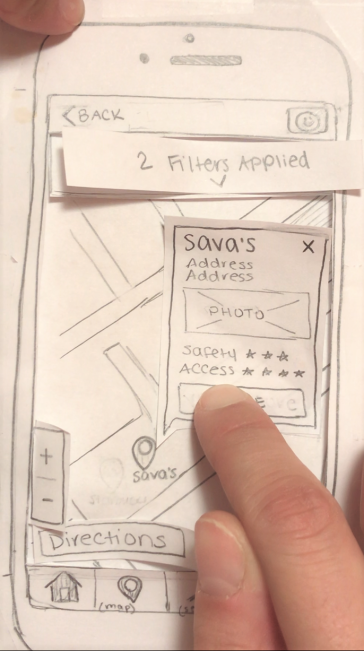 <BACK
2 Filters Applied
Sava's
X
Address
Address
PHOTO
Safety ★★★
Access ★★★★
+
sava's
-
Directions
(map)